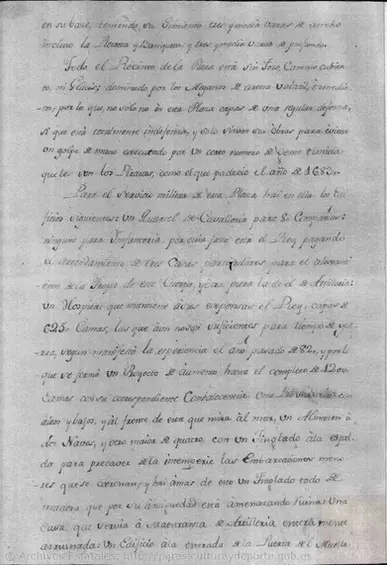 en su base, teniendo su Cimiento tres y media varas de ancho
incluso la Berma y Banqueta; y tres y media varas de profundo.
Todo el Recinto de la Plaza está sin Foso, Camino cubier-
to, ni Glacis; dominado por los Meganos de arena volatil, è inmedia-
ton; por lo que, no solo no es esta Plaza capas de una regular defensa,
si que está totalmente indefensa, y solo sirven sus obras para evitar
un golpe de mano executado por un corto numero de Gente
los Piratas, como el que padecio el año de 1683.
Para el servicio militar de esta Plaza hai en ella los Edi-
ficios siguientes: un Quartel de Cavalleria para 8 Companias:
ninguno para Infanteria por cuia falta está el Rey pagando
el arrendamiento de tres Casas particulares para el aloxami-
ento de la Tropa de este Cuerpo, y otra para la de el de Artilleria:
un Hospital que mantiene à sus expensas el Rey, capas de
625 Camas, las que aun no son suficientes para tiempo de gue-
rra, segun manifestó la experiencia el año pasado de 82, y por lo
que se formó un Proyecto de aumento hasta el completo de 1200
Camas con su correspondiente Combalecencia: una
altos y bajos, y al frente de esta que mira al mar, un Almacen à
dos Naves, y otro maior de quatro, con un Tinglado à la espal-
da para precaver de la intemperie las Embarcaciones meno-
res que se carenan; y hai amas de esto un Tinglado todo de
madera que por su antiguedad está amenazando ruina: una
Casa, que servia à Maestranza de Artilleria enteramente
arruinada: un Edificio à la entrada de la Puerta del Muelle
© Archivos Estatales, http://pares.culturaydeporte.gob.es